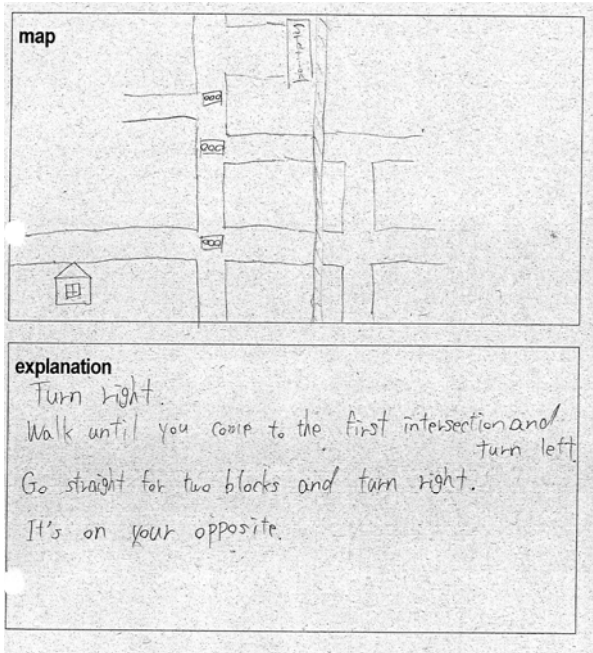 map
explanation
Turn right.
Walk until you come to the first intersection and
turn left.
Go straight for two blocks and turn right.
It's on your opposite.